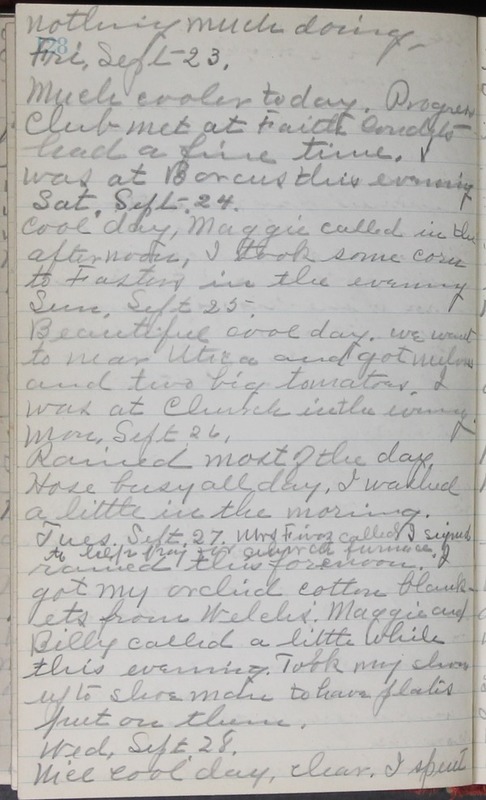 nothing much doing.
128
Fri, Sept 23.
Much cooler today. Progress
Club met at Faith
had a fine time. I
was at Barcus this evening
Sat. Sept. 24.
cool day, Maggie called in the
afternoon, I took some corn
to Fasters in the evening
Sun, Sept 25.
Beautiful cool day. we went
to near Utica and got melons
and two big tomatoes. I
was at Church in the evening.
Mon, Sept 26.
Rained most of the day.
Hose busy all day. I washed
a little in the morning.
Tues. Sept. 27. Mrs called I signed
to help pay for church furnace.
rained this forenoon. I
got my orchid cotton blank-
ets from Welchs. Maggie and
Billy called a little while
this evening. Took my shoes
up to shoe man to have plates
put on them.
Wed, Sept 28.
Nice cool day, clear. I spent